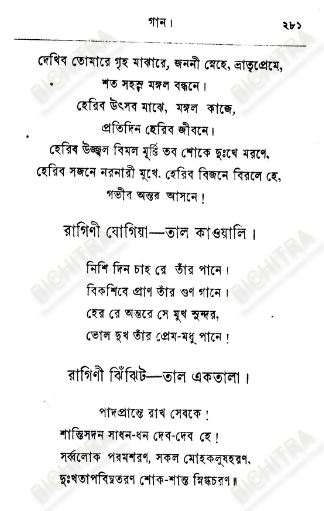 গান।
২৮১
দেখিব তোমারে গৃহ মাঝারে, জননী স্নেহে, ভ্রাতৃপ্রেমে,
শত সহস্র মঙ্গল বন্ধনে।
হেরিব উৎসব মাঝে, মঙ্গল কাজে,
প্রতিদিন হেরিব জীবনে।
হেরিব উজ্জ্বল বিমল মূর্ত্তি তব শোকে দুঃখে মরণে,
হেরিব সজনে নরনারী মুখে, হেরিব বিজনে বিরলে হে,
গভীর অন্তর আসনে!
রাগিণী যোগিয়া—তাল কাওয়ালি।
নিশি দিন চাহ রে তাঁর পানে।
বিকশিবে প্রাণ তাঁর গুণ গানে।
হের রে অন্তরে সে মুখ সুন্দর,
ভোল দুখ তাঁর প্রেম-মধু পানে!
রাগিণী ঝিঁঝিট—তাল একতালা।
পাদপ্রান্তে রাখ সেবকে!
শান্তিসদন সাধন-ধন দেব-দেব হে!
সর্ব্বলোক পরমশরণ, সকল মোহকলুষহরণ,
দুঃখতাপবিঘ্নতরণ শোক-শান্ত স্নিগ্ধচরণ॥
BICHITRA
BICHITRA
BICHITRA
BICHITRA
BICHITRA
BICHITRA